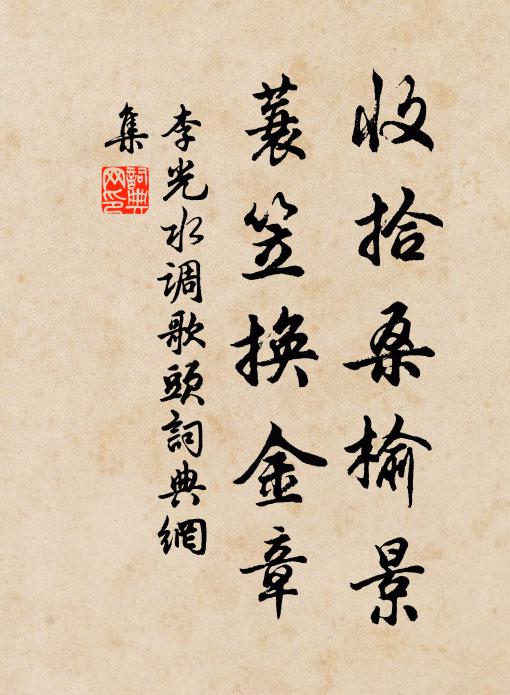 收拾桑榆景
蓑笠換金章
李光水调歌頭詞典網
集
詞典網印